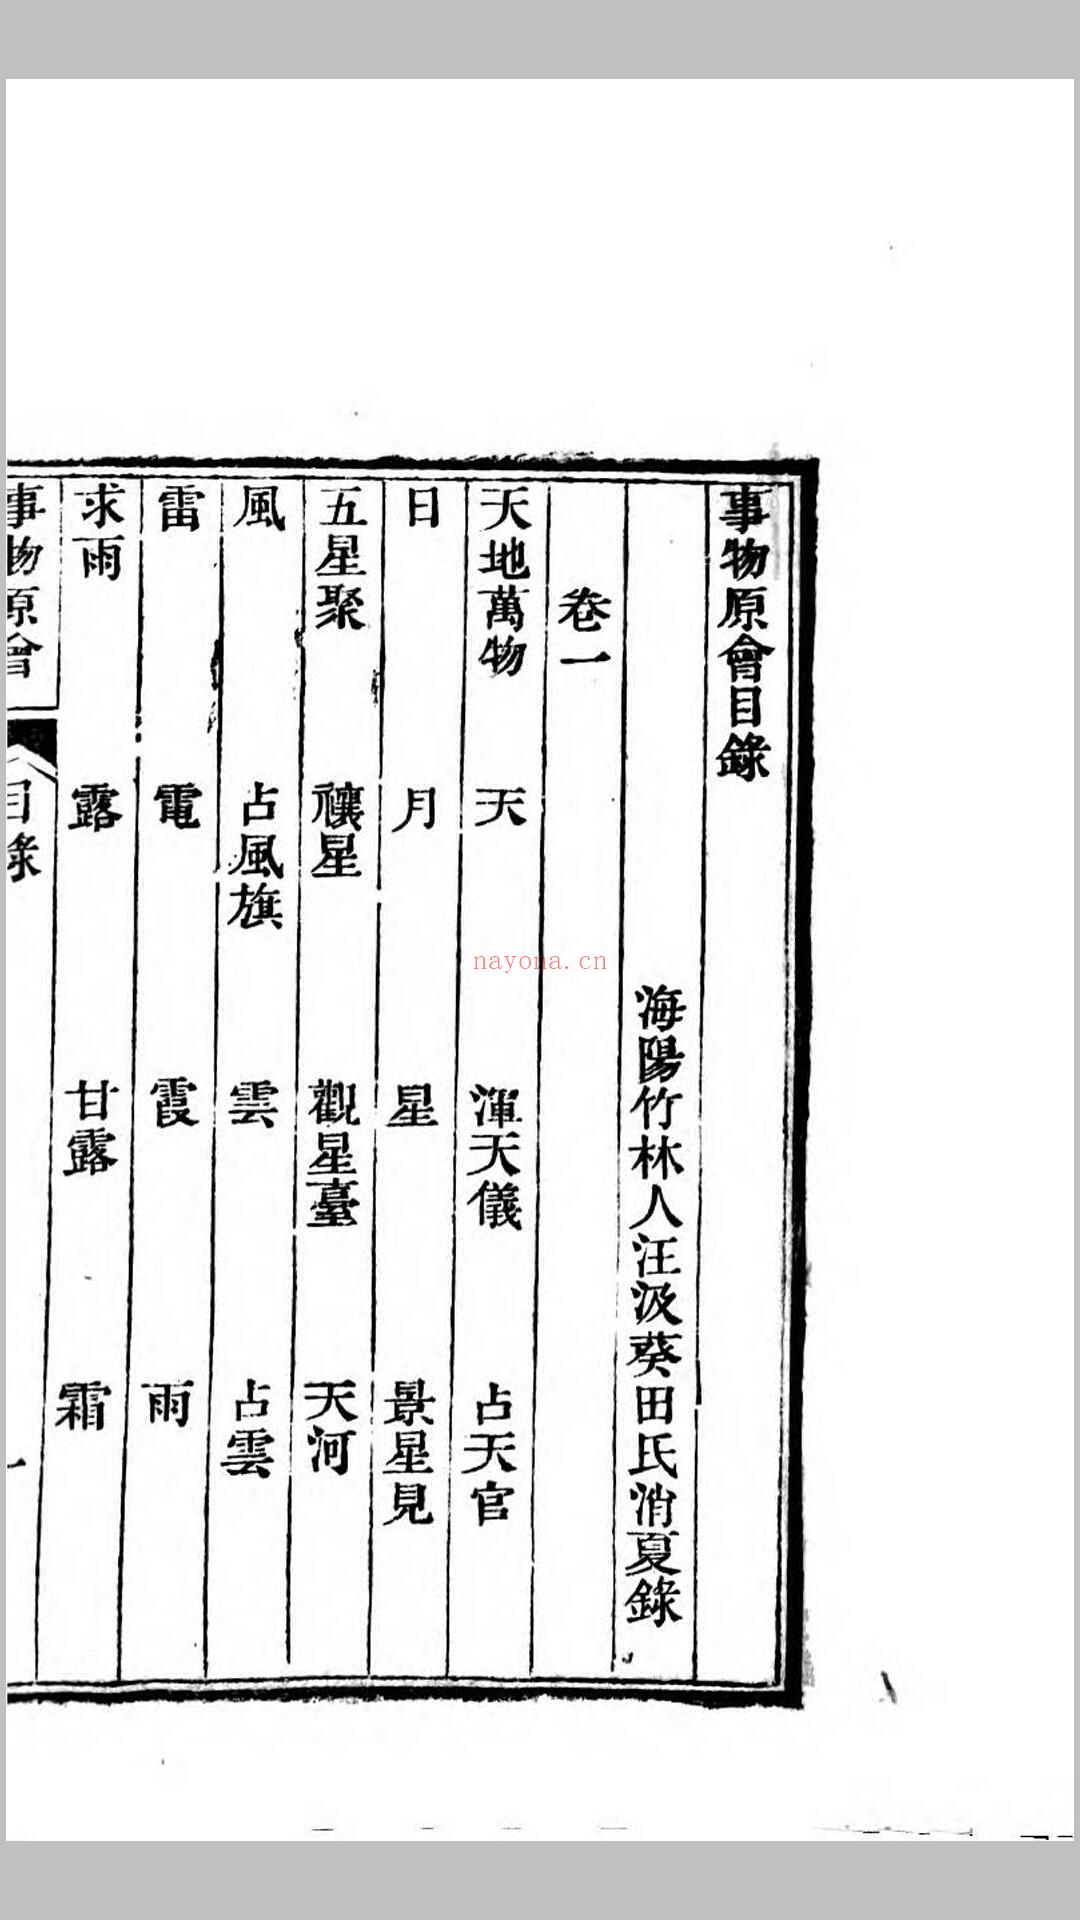 事物原會目錄
海陽竹林人汪汲葵田氏消夏錄
卷一
天地萬物　天　渾天儀　占天官
日　月　星　景星見
五星聚　禳星　觀星臺　天河
風　占風旗　雲　占雲
雷　電　霞　雨
求雨　露　甘露　霜
事物原會　目錄　一
nayona.cn